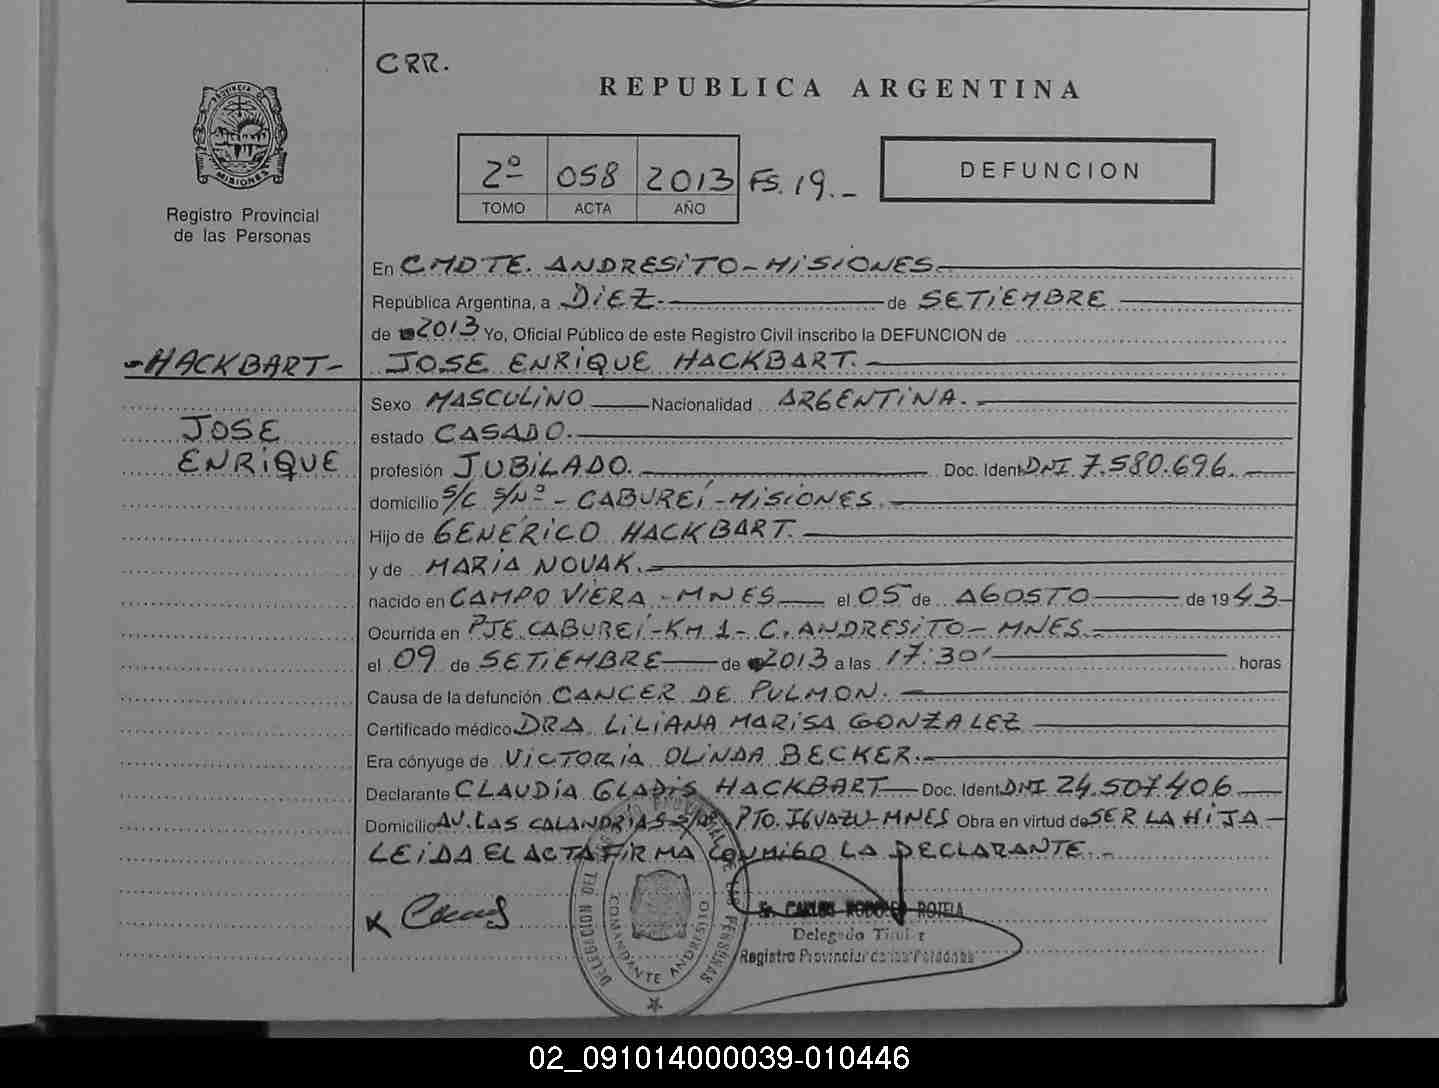 CRR.
REPUBLICA ARGENTINA
PROVINCIA DE
MISIONES
Registro Provincial
de las Personas
2º 058 2013 FS. 19.-
TOMO ACTA AÑO
DEFUNCION
En CMDTE. ANDRESiTO-MiSiONES
República Argentina, a DiEZ. de SETiEMBRE
de 2013 Yo, Oficial Público de este Registro Civil inscribo la DEFUNCION de
-HACKBART- JOSE ENRiQUE HACKBART.
JOSE
ENRiQUE
Sexo MASCULiNO Nacionalidad ARGENTiNA.
estado CASADO.
profesión JUBiLADO. Doc. Ident. DNI 7.580.696.
domicilio S/C S/Nº - CABUREí-MiSiONES.
Hijo de GENERiCO HACKBART.
y de MARiA NOVAK.
nacido en CAMPO ViERA-MNES el 05 de AGOSTO de 1943
Ocurrida en PJE.CABUREí-KM 1-C. ANDRESiTO-MNES.
el 09 de SETiEMBRE de 2013 a las 17:30' horas
Causa de la defunción CANCER DE PULMON.
Certificado médico DRA. LiLiANA MARiSA GONZALEZ
Era cónyuge de ViCTORiA OLiNDA BECKER.
Declarante CLAUDiA GLADiS HACKBART Doc. Ident. DNI 24.507.406
Domicilio AV.LAS CALANDRiAS S/Nº PTO. IGUAZU-MNES Obra en virtud de SER LA HiJA
LEiDA EL ACTA FiRMA CONMiGO LA DECLARANTE.-
DELEGACION DEL REGISTRO PROVINCIAL DE LAS PERSONAS
COMANDANTE ANDRESITO
Sr. CARLOS RODOLFO ROTELA
Delegado Titular
Registro Provincial de las Personas
02_091014000039-010446